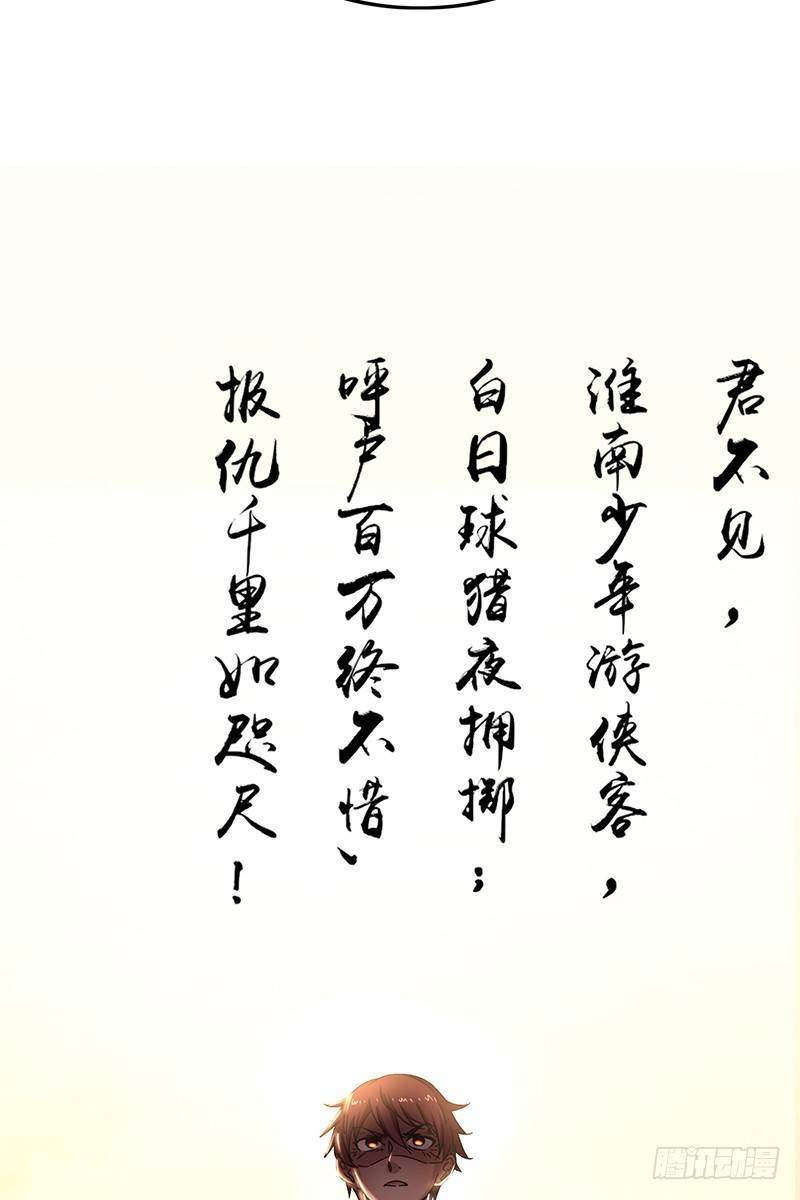 君不见，
淮南少年游侠客，
白日球猎夜拥掷；
呼卢百万终不惜、
报仇千里如咫尺！
腾讯动漫